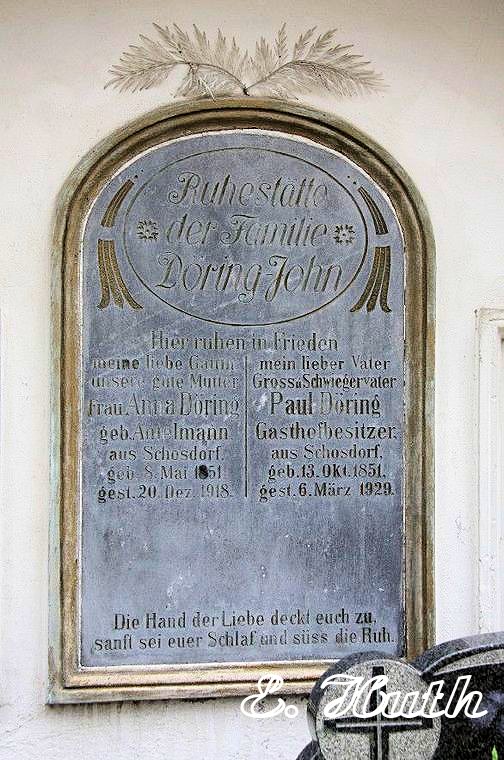 Ruhestätte
der Familie
Döring-John
Hier ruhen in Frieden
meine liebe Gattin
unsere gute Mutter
Frau Anna Döring
geb. Amelmann
aus Schosdorf,
geb. 8. Mai 1851,
gest. 20. Dez. 1918.
mein lieber Vater
Gross u. Schwiegervater
Paul Döring
Gasthofbesitzer,
aus Schosdorf,
geb. 13. Okt. 1851,
gest. 6. März 1929.
Die Hand der Liebe deckt euch zu,
sanft sei euer Schlaf und süss die Ruh.
E. Huth